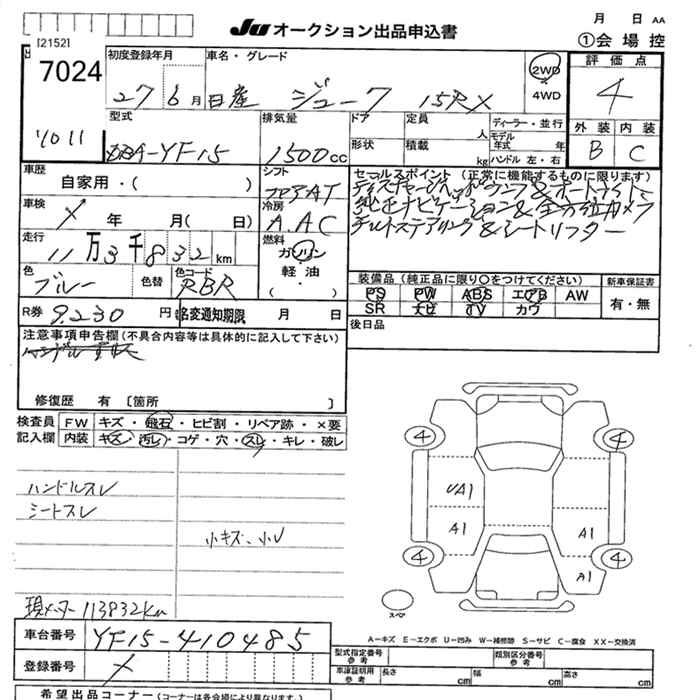 JU オークション出品申込書
月 日 AA
①会場控
[2152]
7024
初度登録年月
27 6月
車名・グレード
日産 ジューク 15RX
2WD
・
4WD
評価点
4
外装 内装
B C
'10 11
型式
DBA-YF15
排気量
1500cc
ドア
形状
定員
人
積載
kg
ディーラー・並行
モデル年式 年
ハンドル 左・右
車歴
自家用・( )
シフト
フロアAT
セールスポイント(正常に機能するものに限ります)
ディスチャージヘッドランプ&オートライト
純正ナビゲーション&全方位カメラ
チルトステアリング&シートリフター
車検
× 年 月(日)
冷房
A.AC
走行
11万3千832km
燃料
ガソリン
・
軽油
( ・ )
色
ブルー
色替
色コード
RBR
装備品(純正品に限り○をつけてください)
PS PW ABS エアB AW
SR ナビ TV カワ
新車保証書
有・無
R券 9.230円
名変通知期限 月 日
後日品
注意事項申告欄(不具合内容等は具体的に記入して下さい)
修復歴 有〔箇所 〕
検査員記入欄
FW キズ・飛石・ヒビ割・リペア跡・×要
内装 キズ・汚レ・コゲ・穴・スレ・キレ・破レ
ハンドルスレ
シートスレ
小キズ、小U
現メーター113832km
4 4
UA1
A1 A1
A1
4 4
スペア
車台番号 YF15-410485
登録番号 ×
A-キズ E-エクボ U-凹み W-補修跡 S-サビ C-腐食 XX-交換済
型式指定番号参考
類別区分番号参考
車庫証明用参考 長さ cm 幅 cm 高さ cm
希望出品コーナー(コーナーは各会場により異なります)